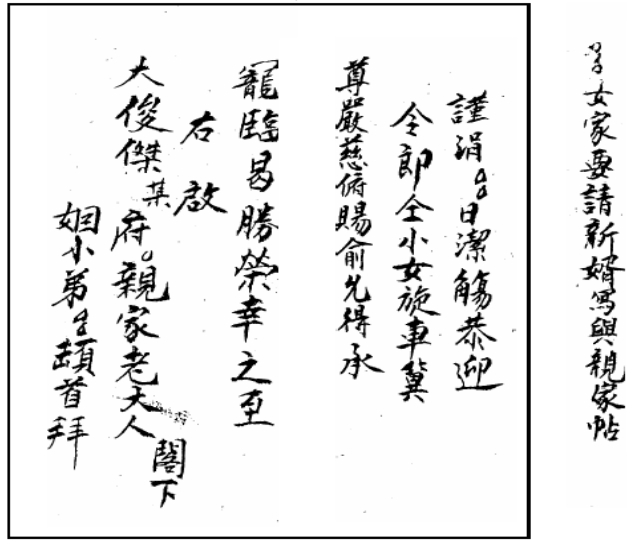 旹女家要請新婿寫與親家帖
謹涓〇〇日潔觴恭迎
令郎仝小女旋車冀
尊嚴慈俯賜俞允得承
寵臨曷勝榮幸之至
右啟
大俊傑某府〇親家老大人閣下
姻小弟〇〇頓首拜